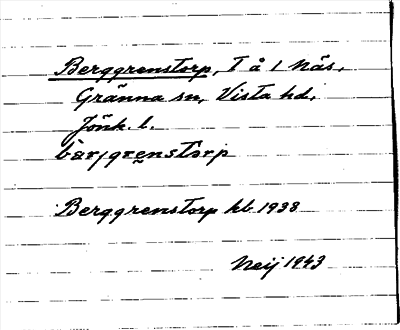 Berggrenstorp, T å 1 Näs,
Gränna sn, Vista hd,
Jönk. l.
bärjgrenstorp
Berggrenstorp kb 1938
Neij 1943